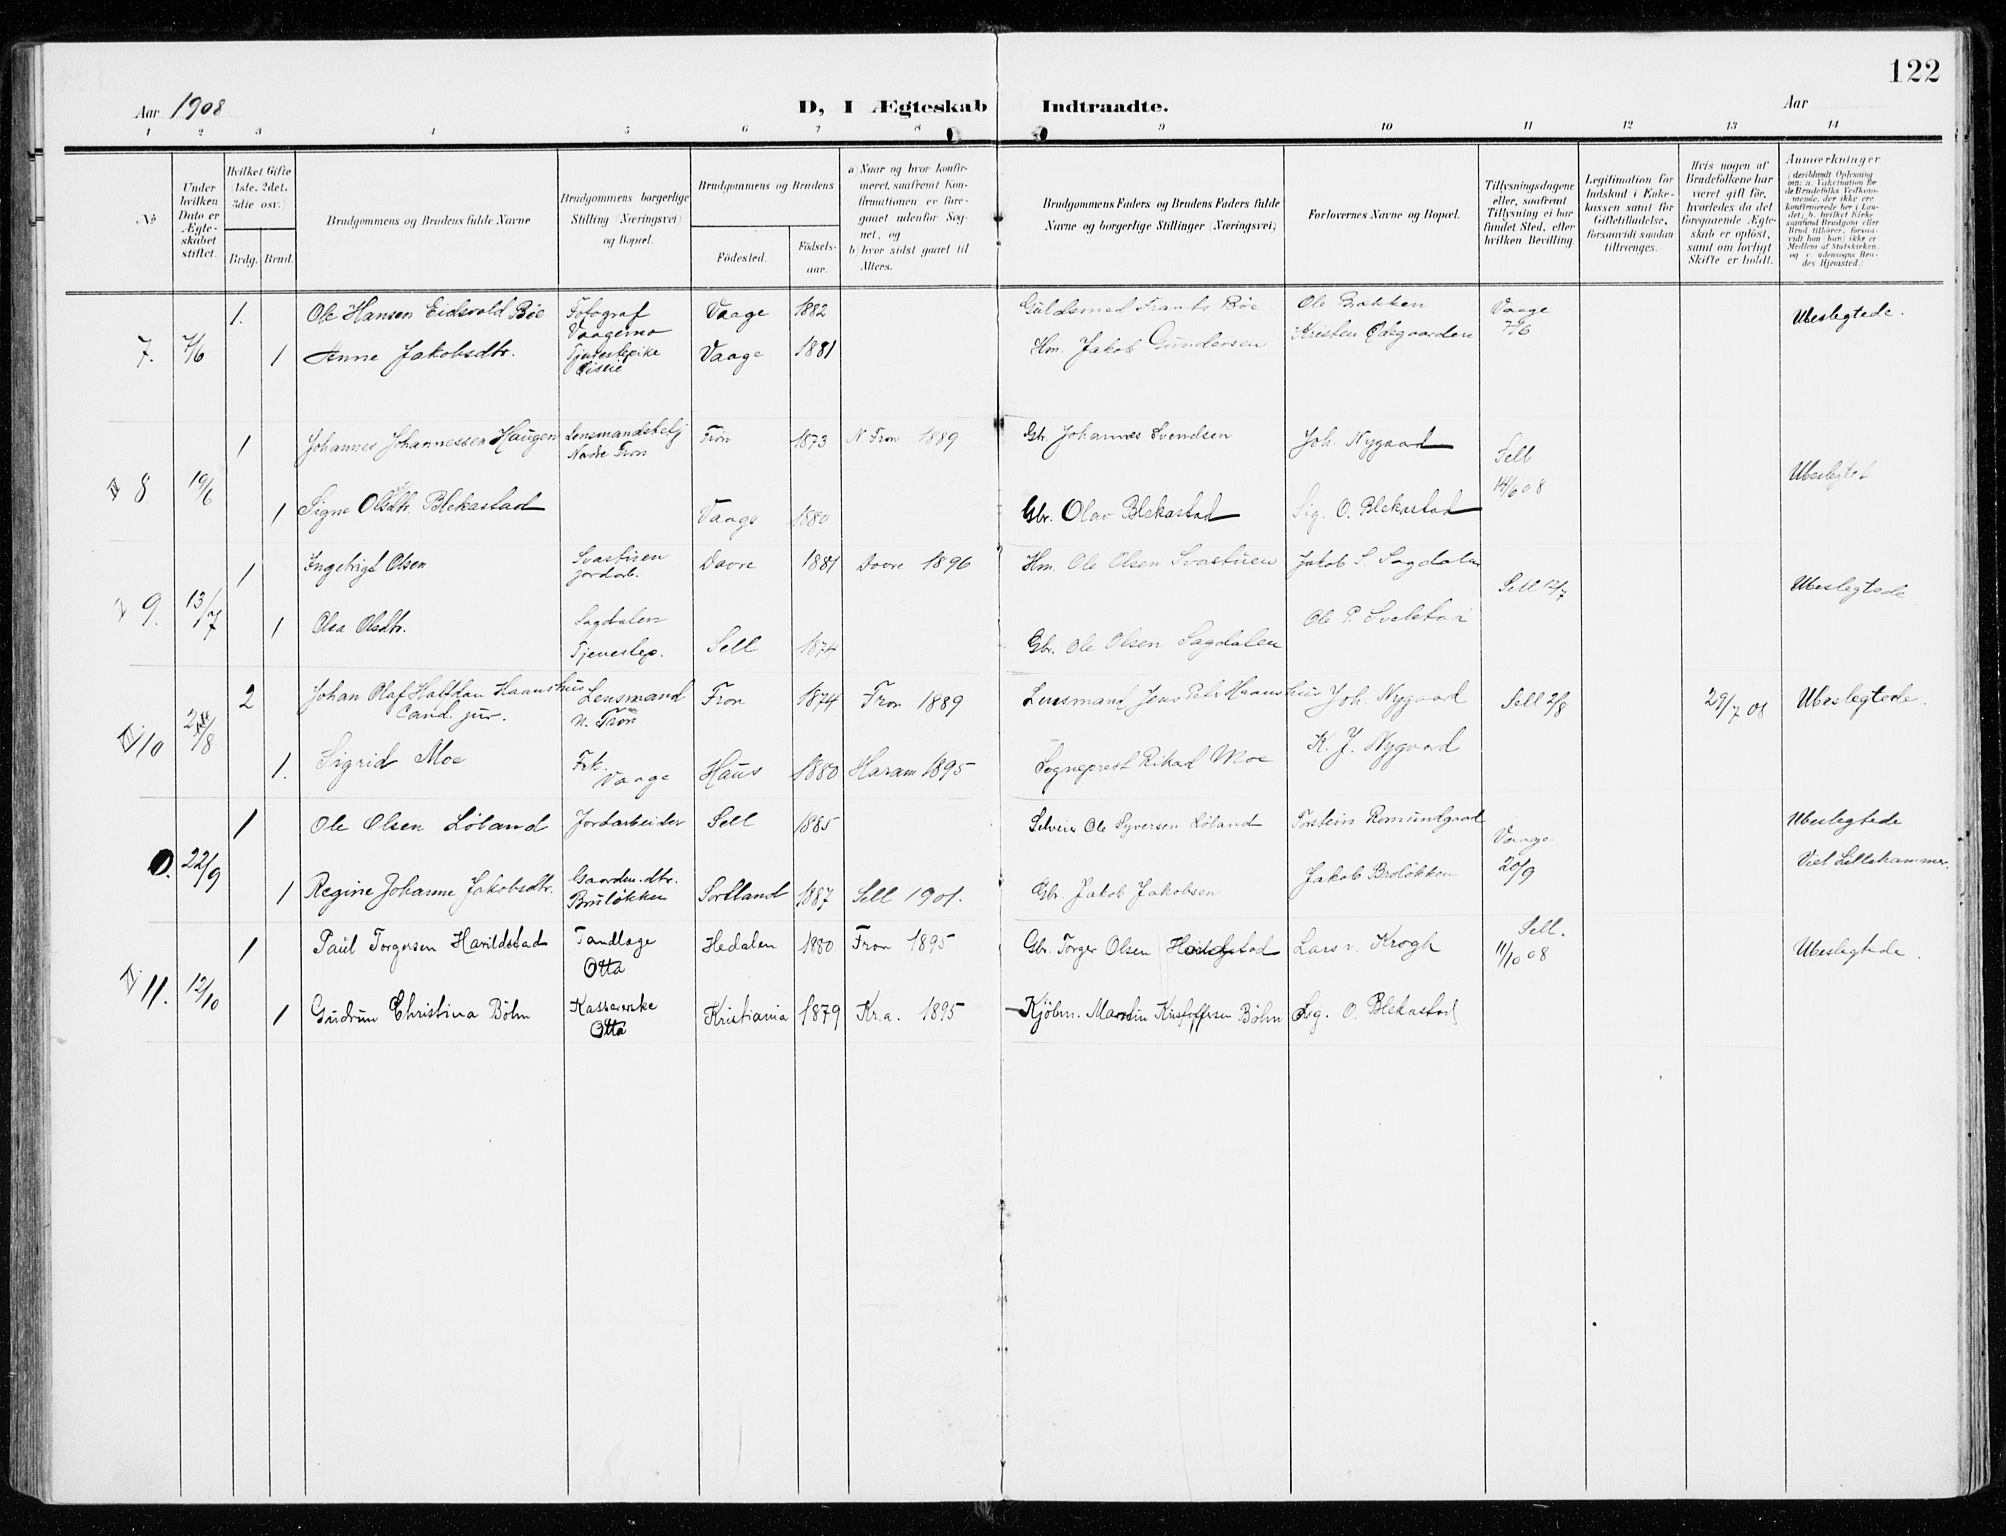 122
Aar 1908
D, I Ægteskab Indtraadte.
Aar
1 2 3 4 5 6 7 8 9 10 11 12 13 14
No
Under hvilken Dato er Ægte-skabet stiftet.
Hvilket Gifte 1ste, 2det, 3die osv.)
Brdg. Brud.
Brudgommens og Brudens fulde Navne
Brudgommens borgerlige Stilling (Næringsvei) og Bopæl.
Brudgommens og Brudens
Födested.
Födsels-aar.
a) Naar og hvor konfir-meret, saafremt Kon-firmationen er fore-gaaet udenfor Sog-net, og
b) hvor sidst gaaet til Alters.
Brudgommens Faders og Brudens Faders fulde Navne og borgerlige Stillinger (Næringsvei)
Forlovernes Navne og Bopæl.
Tillysningsdagene eller, saafremt Tillysning ei har fundet Sted, efter hvilken Bevilling.
Legitimation for Indskud i Enke-kassen samt for Giftetilladelse, forsaavidt saadan tiltrænges.
Hvis nogen af Brudefolkene har været gift för, hvorledes da det foregaaende Ægte-skab er oplöst, samt om lovligt Skifte er holdt.
Anmærkninger
(deriblandt Oplysning om: a. Vakcination for de Brudefolks Vedkom-mende, der ikke ere konfirmerede her i Lan-det; b. hvilket Kirke-samfund Brudgom eller Brud tilhörer, forsaa-vidt han (hun) ikke er Medlem af Statskirken, og c. udensogns Bru-des Hjemsted.
7. 7/6 1. Ole Hansen Eidsvold Bøe Fotograf Vaagemo Vaage 1882 Guldsmed Frants Bøe Ole Bakken Vaage 7/6 Ubeslegtede.
1 Anne Jakobsdtr. Tjenestepike Vaage 1881 Hm. Jakob Gundersen Kristen Ødegaarden
8 19/6 1 Johannes Johannessen Haugen Lensmandsbetj Nodre Fron Fron 1873 N Fron 1889 Gbr. Johannes Svendsen Joh. Nygaard Sell 14/6 08 Ubeslegtet
1 Signe Olsdtr. Blekastad Vaage 1880 Gbr. Olav Blekastad Sig. O. Blekastad
9. 13/7 1 Ingebrigt Olsen Svastuen jordarb. Dovre 1881 Dovre 1896 Hm. Ole Olsen Svastuen Jakob S. Sagdalen Sell 12/7 Ubeslegtede
1 Olea Olsdtr. Sagdalen Tjenestep. Sell 1874 Gbr. Ole Olsen Sagdalen Ole P.
10 2 Johan Olaf Halfdan Haanshus Cand. jur. Lensmand N. Fron Fron 1874 Fron 1889 Lensmand Jens Petr Haanshus Joh. Nygaard Sell 2/8 29/7 08 Ubeslegtede.
1. Sigrid Moe Frk. Vaage Haus 1880 Haram 1895 Sogneprest Rikard Moe K. J. Nygaard
22/9 1 Ole Olsen Löland Jordarbeider Sell 1885 Selveier Ole Syversen Löland Torstein Romundgaard Vaage 20/9 Ubeslegtede
1 Regine Johanne Jakobsdtr. Gaardm.dtr. Bruløkken Sortland 1887 Sell 1901. Gbr. Jakob Jakobsen Jakob Breløkken Viet Lillehammer.
11. 12/10 1 Paul Torgersen Harildstad Tandlæge Otta Hedalen 1880 Fron 1895 Gbr. Torger Olsen Lars v. Krogh Sell. 11/10 08 Ubeslegtede.
1 Gudrun Christina Böhm Kassererske Otta Kristiania 1879 Kr.a. 1895 Kjöbm. Martin Kristoffersen Böhm Sig. O. Blekastad